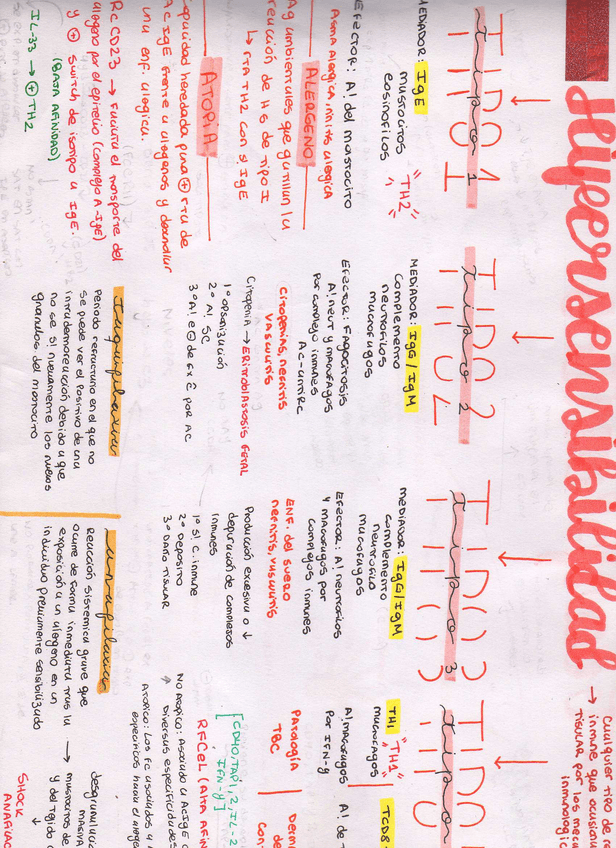 Hipersensibilidad
→ cualquier tipo de
inmune que ocasiona
TISULAR por los
inmunológico
TIPO 1
tipo 1
MEDIADOR: IgE
mastocitos "TH2"
eosinofilos
EFECTOR: A! del mastocito
Asma alergica, rinitis alergica
ALERGENO
Ag ambientales que gatillan la
reacción de Hs de tipo I
↳ rta TH2 con sí IgE
ATOPIA
capacidad heredada para ⊕ rta de
Ac IgE frente a alergenos y desarrollar
una enf. alergica.
RcCD23 → Facilita el transporte del
alergeno por el epitelio (complejo A-IgE)
y ⊕ switch de isotipo a IgE.
(BAJA AFINIDAD)
IL-33 → ⊕ TH2
TIPO 2
tipo 2
MEDIADOR: IgG/IgM
complemento
neutrofilos
macrofagos
Efector: Fagocitosis
A! neut y macrofagos
por complejo inmunes
Ac-
CITOPENIAS, nefritis
VASCULITIS
Citopenia → ERITROBLASTOSIS FETAL
1º opsonización
2º A! SC
3º A! e ⊖ de Fx ₵ por AC
Taquifilaxia
Periodo refractario en el que no
se puede ver el positivo de una
intradermoreacción debido a que
no se si nuevamente los nuevos
granulos del monocito
TIPO 3
tipo 3
MEDIADOR: IgG/IgM
complemento
neutrofilo
macrofagos
Efector: A! neutrofilos
y macrofagos por
complejos inmunes
ENF. del suero
nefritis, vasculitis
Producción excesiva o ↓
depuración de complejos
inmunes
1º SI C. inmune
2º Deposito
3º Daño tisular
anafilaxia
Reacción sistemica grave que
ocurre de forma inmediata tras la
exposición a un alergeno en un
individuo previamente sensibilizado
TIPO
tipo
TH1 "TH1"
macrofagos
A! macrofagos
por IFN-γ
Patología
TBC
TCD8
A! de
Derm
de
con
IFN-γ]
RFCεL (Alta Afin
No atopico: Asociado a Ac IgE
→ Diversas especificidades
Atopico: Los Fc asociados a
especificos hacia el alerge
desgranulación
masiva
→ mastocitos de
y del tejido c
↓
SHOCK
ANAFILAC